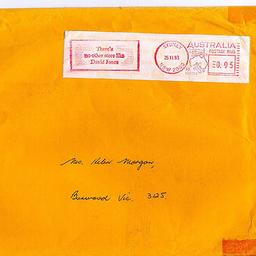 There's
no other store like
David Jones
SYDNEY
25 11 93
N.S.W. 2000
AUSTRALIA
POSTAGE PAID
0.95
Mrs. Helen Morgan,
Burwood Vic. 3125.